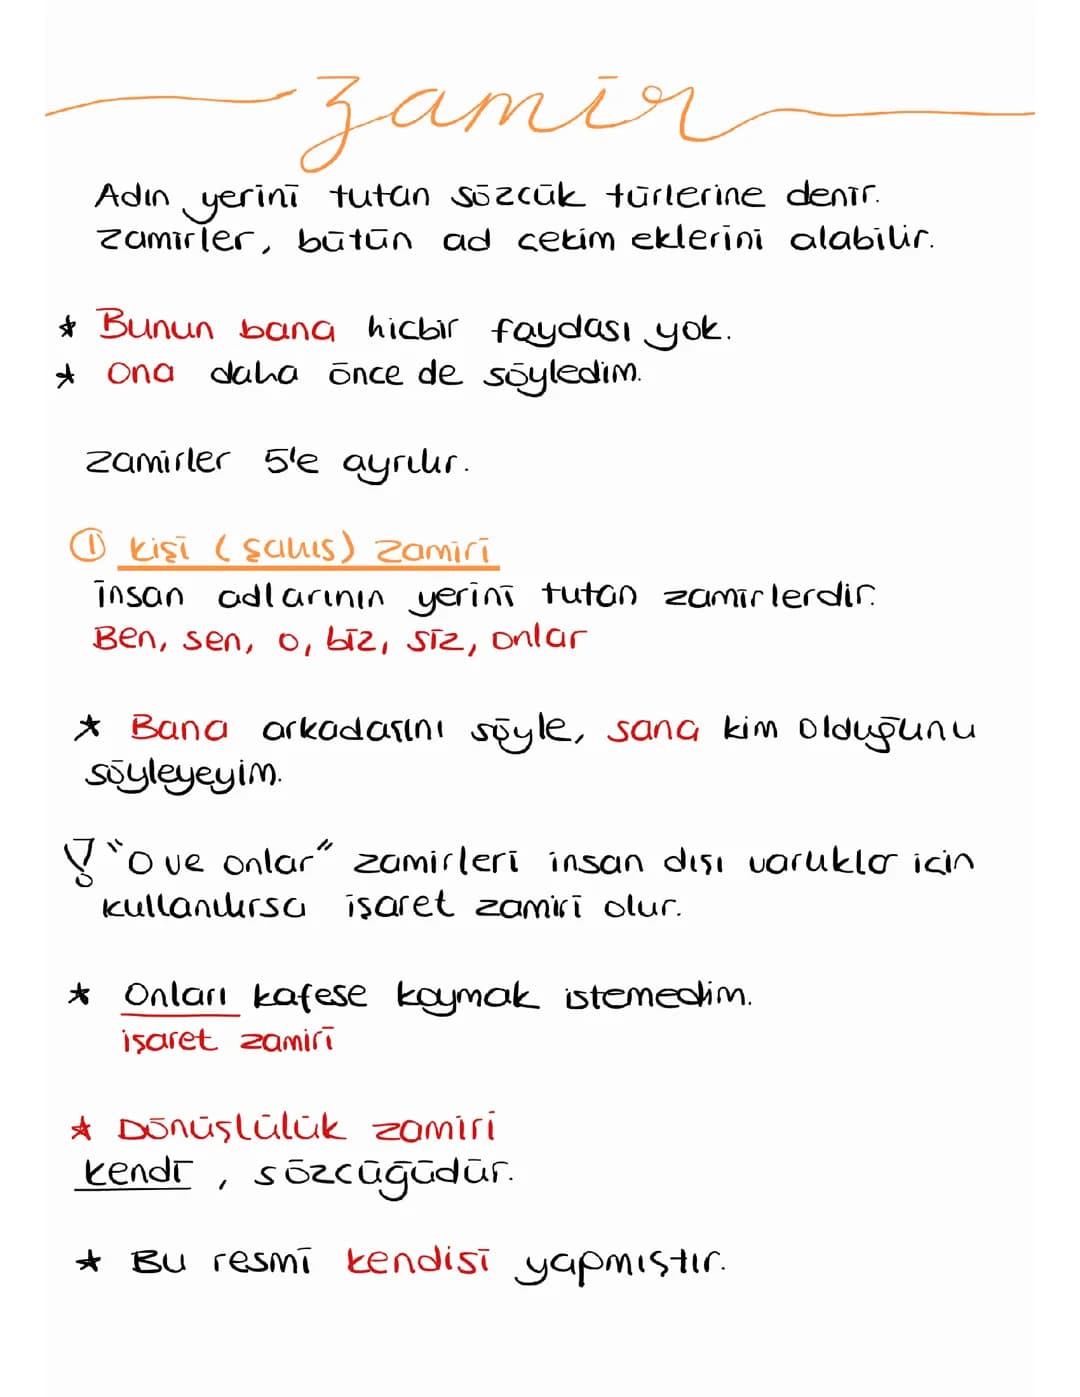 zamir
Adın yerini tutan sözcük türlerine denir.
Zamirler, bütün ad çekim eklerini alabilir.
* Bunun bana hiçbir faydası yok.
* Ona daha önce de söyledim.
Zamirler 5'e ayrılır.
① Kişi (şahıs) Zamiri
İnsan adlarının yerini tutan zamirlerdir.
Ben, sen, o, biz, siz, onlar
* Bana arkadaşını söyle, sana kim olduğunu
söyleyeyim.
! "O ve onlar" zamirleri insan dışı varlıklar için
kullanılırsa işaret zamiri olur.
* Onları kafese koymak istemedim.
işaret zamiri
* Dönüşlülük zamiri
Kendi, sözcüğüdür.
* Bu resmi kendisi yapmıştır.